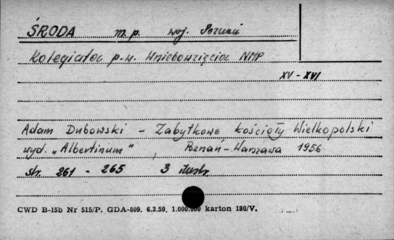 ŚRODA m.p. woj. Poznań
Kolegiata p.w. Wniebowzięcia NMP
XV - XVI
Adam Dubowski - Zabytkowe kościoły Wielkopolski
wyd. „Albertinum", Poznań-Warszawa 1956
str. 261 - 265 3 ilustr.
CWD B-15b Nr 515/P. GDA-809. 6.3.59, 1.000.000 karton 180/V.